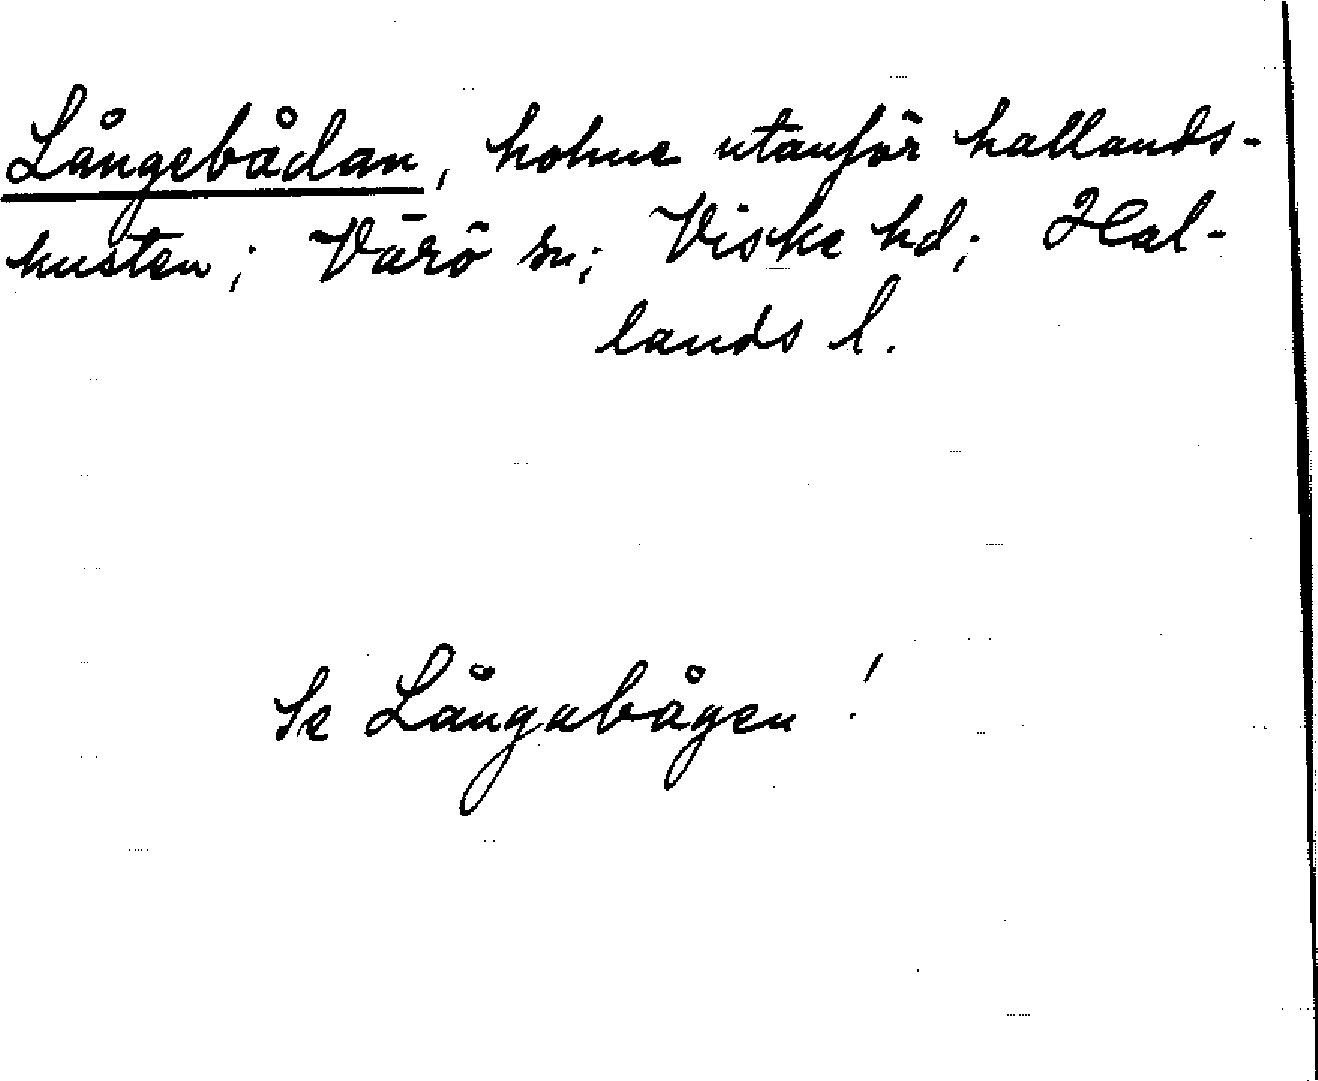 Långebådan, holme utanför hallands-
kusten; Värö sn; Viske hd; Hal-
lands l.
Se Långabågen!